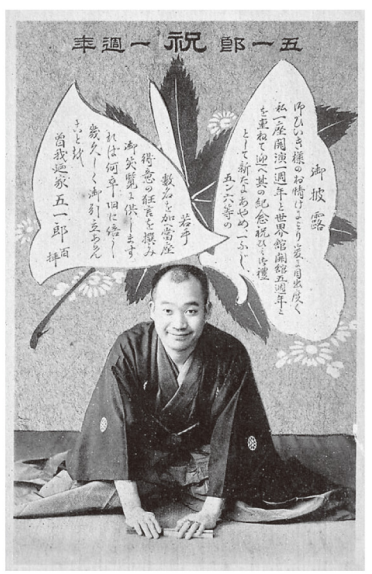 五一郎 祝 一週年
御披露
御ひいき様のお情けにより目出度く
私一座開演一週年と世界館開館五週年と
を重ねて迎へ其の紀念祝ひ御禮
として新たにあやめ、ふじ、
五ン六等の
若手
数名を加へ當座
得意の狂言を撰み
御笑覧に供します
れば何卒旧に倍し
幾久しく御引立あらん
ことを
曽我廼家五一郎 百拝